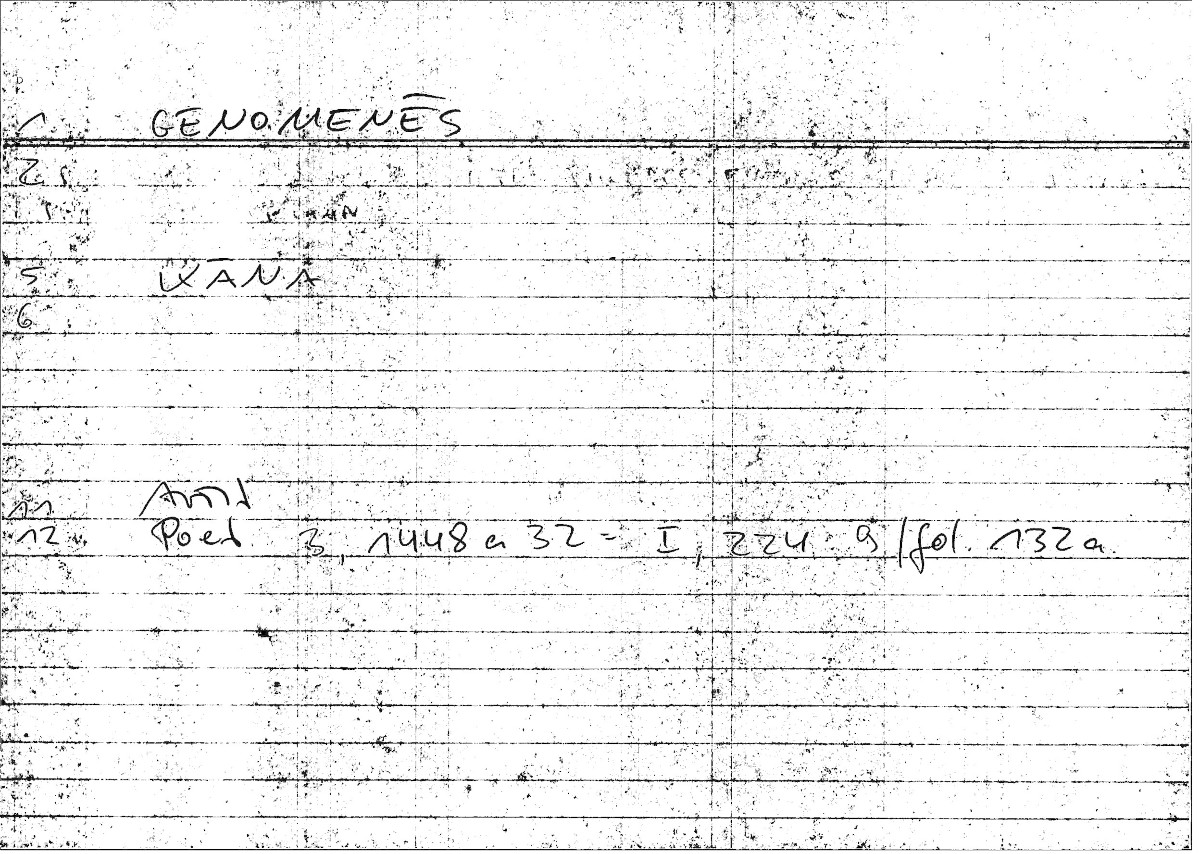 1 GENOMENĒS
2
5 KĀNA
6
11 Arist
12 Poet 3, 1448 a 32 = I, 224 9 / fol. 132 a